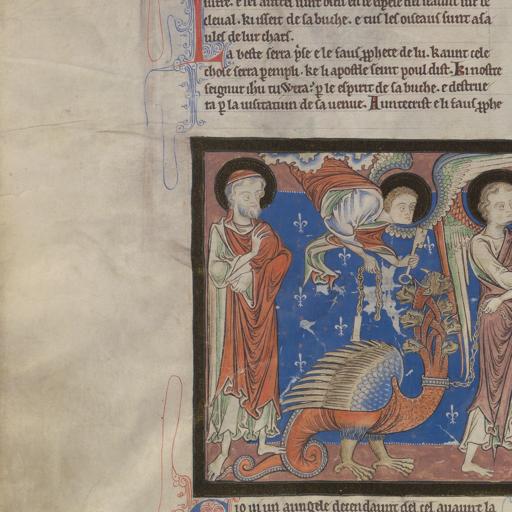 cleual. kissert de sa buche. e tus les oiseaus sunt asa
ules de lur chars.
La beste serra pse e le faus pphete de lu. kaunt cele
chose serra pempli. ke li apostle seint poul dist. Ki nostre
seignur ihu tuera: p le espirit de sa buche. e destrue
ra p la uisitatiun de sa uenue. Auntecrist e li faus pphe
Jo ui un aungele decendaunt del cel auaunt la